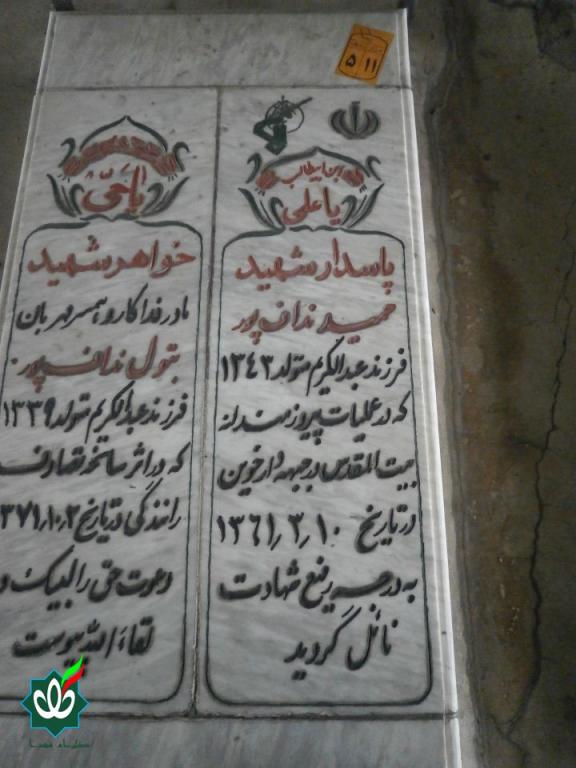 ۵ ۱۱
ابن ابیطالب
یا علی
پاسدار شهید
حمید نداف پور
فرزند عبدالکریم متولد ۱۳۴۳
که در عملیات پیروزمندانه
بیت المقدس در جبهه دارخوین
در تاریخ ۱۳۶۱٫۳٫۱۰
به درجه رفیع شهادت
نائل گردید
یا حی
خواهر شهید
مادر فداکار و همسر مهربان
بتول نداف پور
فرزند عبدالکریم متولد ۱۳۳۹
که در اثر سانحه تصادف
رانندگی در تاریخ ۳۷۱٫۱۰٫۲
دعوت حق را لبیک و
لقاءالله پیوست